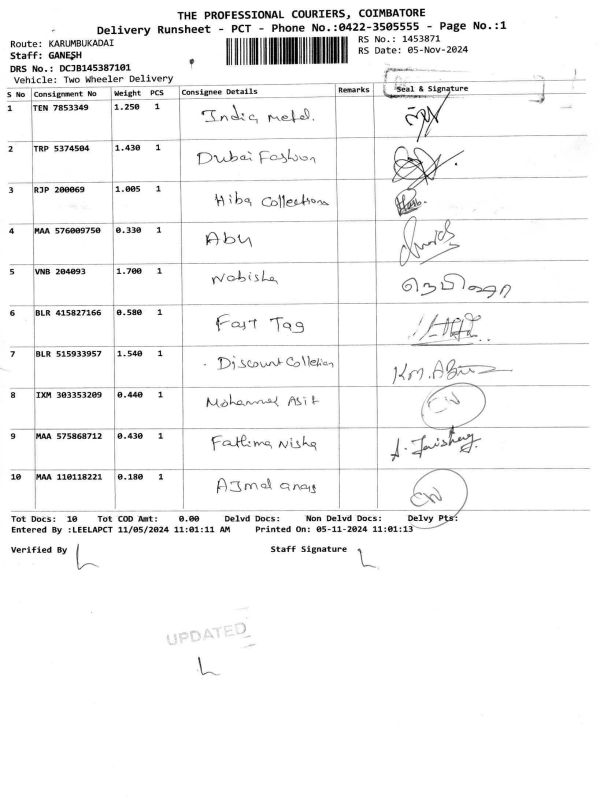 THE PROFESSIONAL COURIERS, COIMBATORE
Delivery Runsheet - PCT - Phone No.:0422-3505555 - Page No.:1
Route: KARUMBUKADAI RS No.: 1453871
Staff: GANESH RS Date: 05-Nov-2024
DRS No.: DCJB145387101
Vehicle: Two Wheeler Delivery
S No Consignment No Weight PCS Consignee Details Remarks Seal & Signature
1 TEN 7853349 1.250 1 India metal.
2 TRP 5374504 1.430 1 Dubai Fashion
3 RJP 200069 1.005 1 Hiba Collections
4 MAA 576009750 0.330 1 Abu
5 VNB 204093 1.700 1 Nabisha
6 BLR 415827166 0.580 1 Fast Tag
7 BLR 515933957 1.540 1 Discount Colletion
8 IXM 303353209 0.440 1 Mohammed Asif
9 MAA 575868712 0.430 1 Fathima Nisha
10 MAA 110118221 0.180 1 AJmal anas
Tot Docs: 10 Tot COD Amt: 0.00 Delvd Docs: Non Delvd Docs: Delvy Pts:
Entered By :LEELAPCT 11/05/2024 11:01:11 AM Printed On: 05-11-2024 11:01:13
Verified By Staff Signature
UPDATED